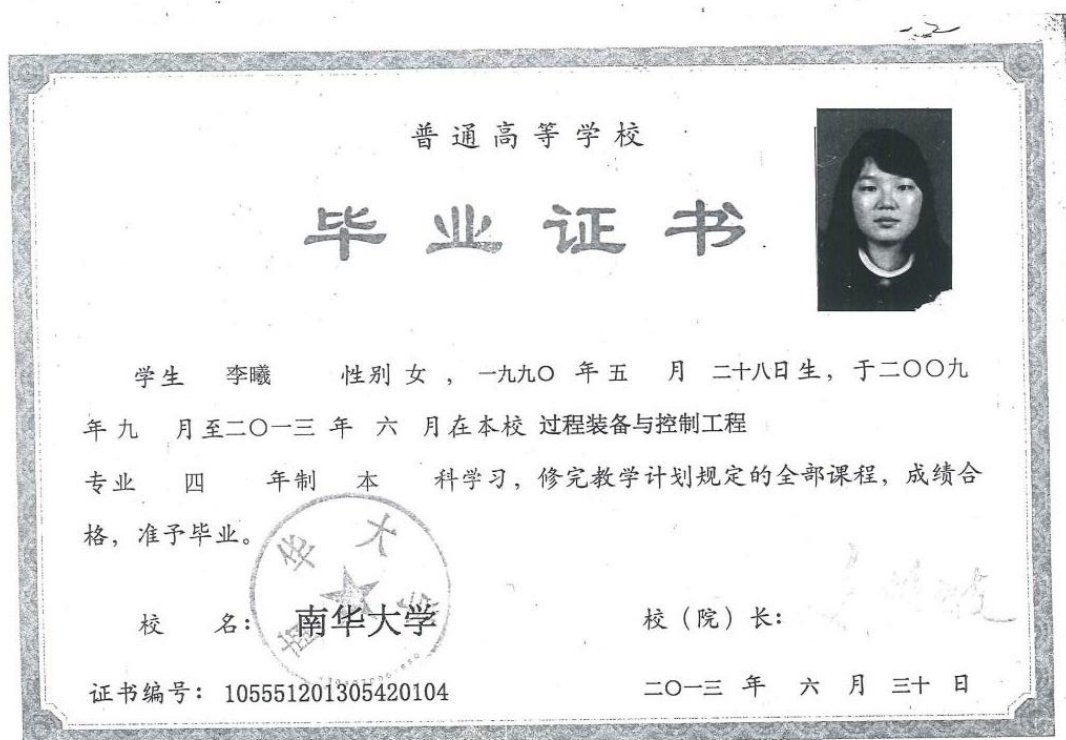 普通高等学校
毕业证书
学生 李曦 性别 女 ，一九九〇 年 五 月 二十八日生，于二〇〇九
年 九 月至二〇一三 年 六 月在本校 过程装备与控制工程
专业 四 年制 本 科学习，修完教学计划规定的全部课程，成绩合
格，准予毕业。
南华大学
校 名：南华大学 校（院）长：
证书编号：105551201305420104 二〇一三 年 六 月 三十 日